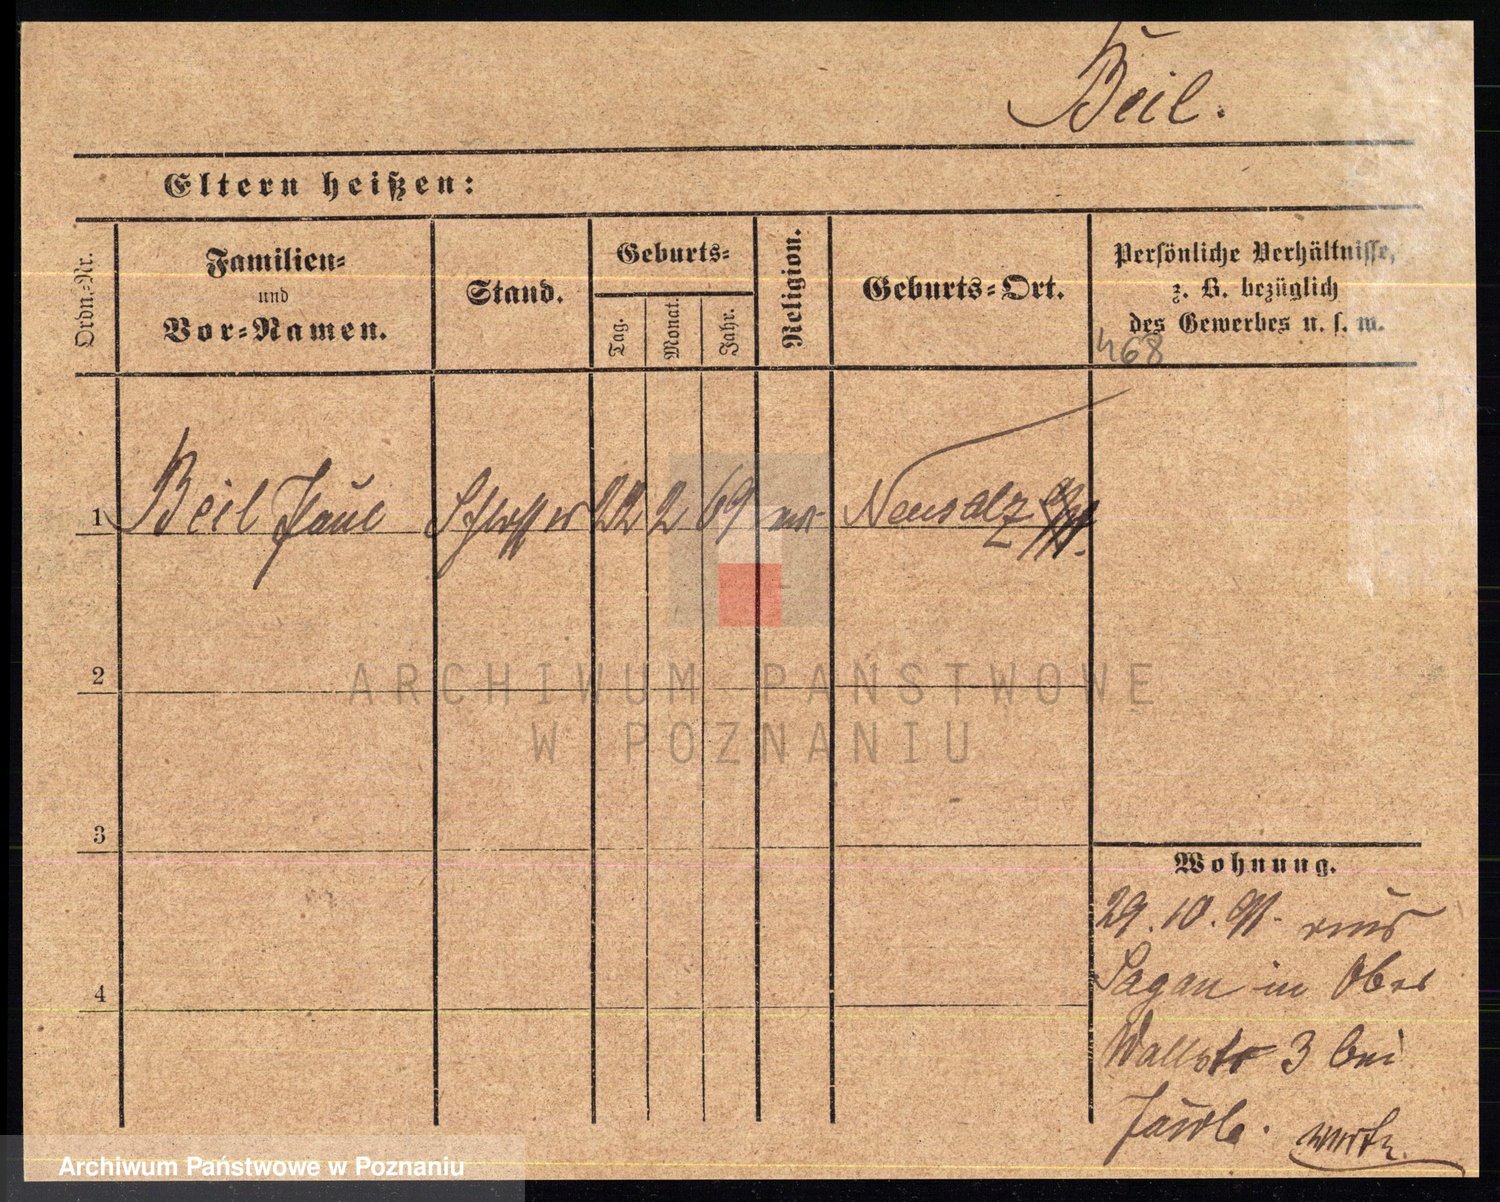 Beil.
Eltern heißen:
Ordn.-Nr.
Familien-
und
Vor-Namen.
Stand.
Geburts-
Tag.
Monat.
Jahr.
Religion.
Geburts-Ort.
Persönliche Verhältnisse,
z. B. bezüglich
des Gewerbes u. s. w.
468
1 Beil Paul Schlosser 22 2 69 ev. Neusalz
2
ARCHIWUM PAŃSTWOWE
W POZNANIU
3
Wohnung.
29.10.91. aus
Sagan in Ober
4
Wallstr 3 bei
Archiwum Państwowe w Poznaniu